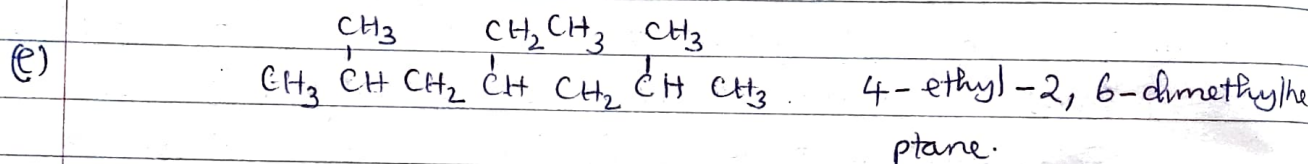 CH3 CH2CH3 CH3
(e) CH3 CH CH2 CH CH2 CH CH3. 4-ethyl-2, 6-dimethylhe
ptane.